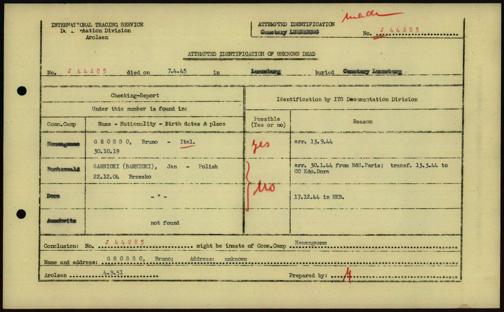 INTERNATIONAL TRACING SERVICE
Documentation Division
Arolsen
ATTEMPTED IDENTIFICATION
Cemetery LUENEBURG
made
No. J 44285
ATTEMPTED IDENTIFICATION OF UNKNOWN DEAD
No. J 44285 died on 7.4.45 in Lueneburg buried Cemetery Lueneburg
Checking-Report
Under this number is found in:
Identification by ITS Documentation Division
Conc.Camp
Name - Nationality - Birth dates & place
Possible
(Yes or no)
Reason
Neuengamme
GROSSO, Bruno - Ital.
30.10.19
yes
arr. 13.9.44
Buchenwald
SARNICKI (BARNICKI), Jan - Polish
22.12.04 Brzesko
no
arr. 30.1.44 from Paris; transf. 13.3.44 to
CC Kdo.Dora
Dora
- " -
17.12.44 in HKB.
Auschwitz
not found
Conclusion: No. J 44285 might be inmate of Conc.Camp Neuengamme
Name and address: GROSSO, Bruno; Address: unknown
Arolsen 4.9.51
Prepared by: